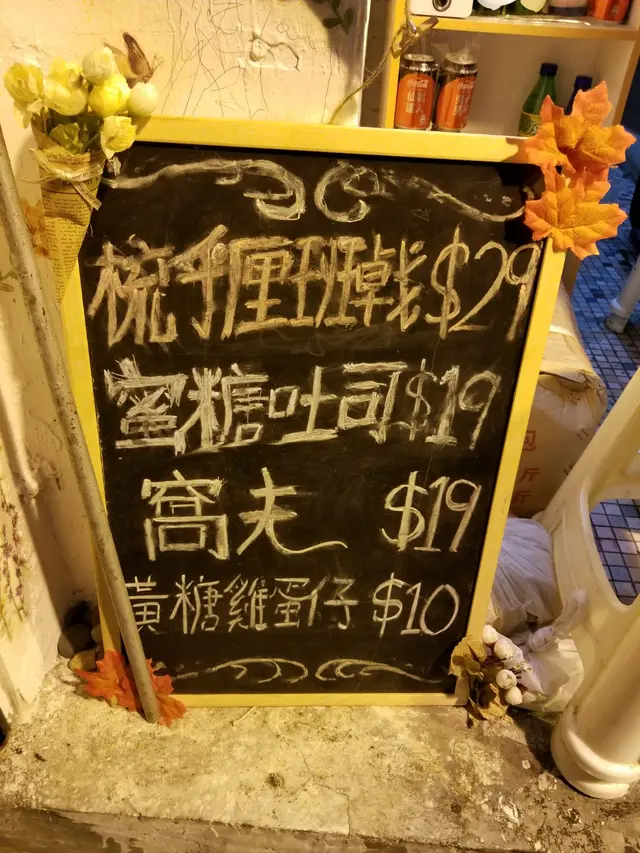 梳乎厘班戟$29
蜜糖吐司$19
窩夫 $19
黃糖雞蛋仔 $10